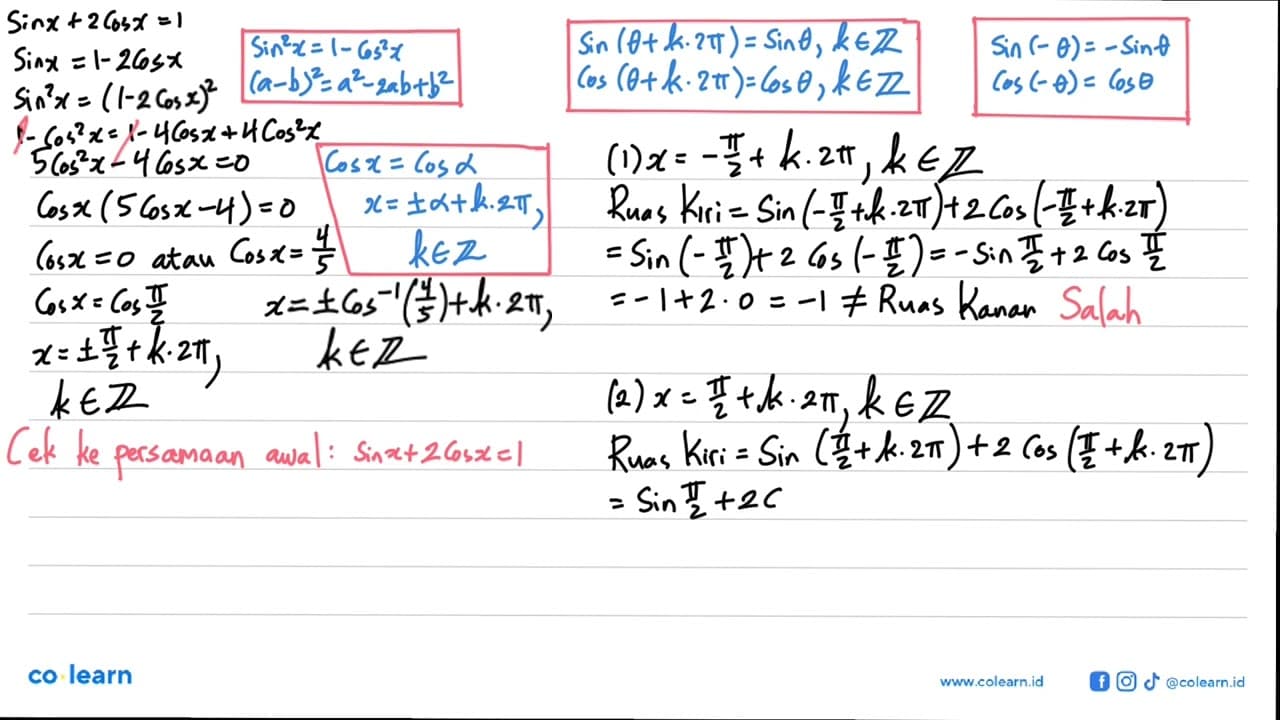 Sin x + 2 Cos x = 1
Sin x = 1 - 2 Cos x
Sin²x = (1 - 2 Cos x)²
1 - Cos²x = 1 - 4 Cos x + 4 Cos²x
5 Cos²x - 4 Cos x = 0
Cos x (5 Cos x - 4) = 0
Cos x = 0 atau Cos x = 4/5
Cos x = Cos π/2
x = ± π/2 + k · 2π,
k ∈ ℤ
x = ± Cos⁻¹(4/5) + k · 2π,
k ∈ ℤ
Cek ke persamaan awal: Sin x + 2 Cos x = 1
Sin²x = 1 - Cos²x
(a-b)² = a² - 2ab + b²
Cos x = Cos α
x = ± α + k · 2π,
k ∈ ℤ
Sin (θ + k · 2π) = Sin θ, k ∈ ℤ
Cos (θ + k · 2π) = Cos θ, k ∈ ℤ
Sin (-θ) = - Sin θ
Cos (-θ) = Cos θ
(1) x = - π/2 + k · 2π, k ∈ ℤ
Ruas Kiri = Sin (- π/2 + k · 2π) + 2 Cos (- π/2 + k · 2π)
= Sin (- π/2) + 2 Cos (- π/2) = - Sin π/2 + 2 Cos π/2
= -1 + 2 · 0 = -1 ≠ Ruas Kanan Salah
(2) x = π/2 + k · 2π, k ∈ ℤ
Ruas Kiri = Sin (π/2 + k · 2π) + 2 Cos (π/2 + k · 2π)
= Sin π/2 + 2 C
co·learn
www.colearn.id
@colearn.id